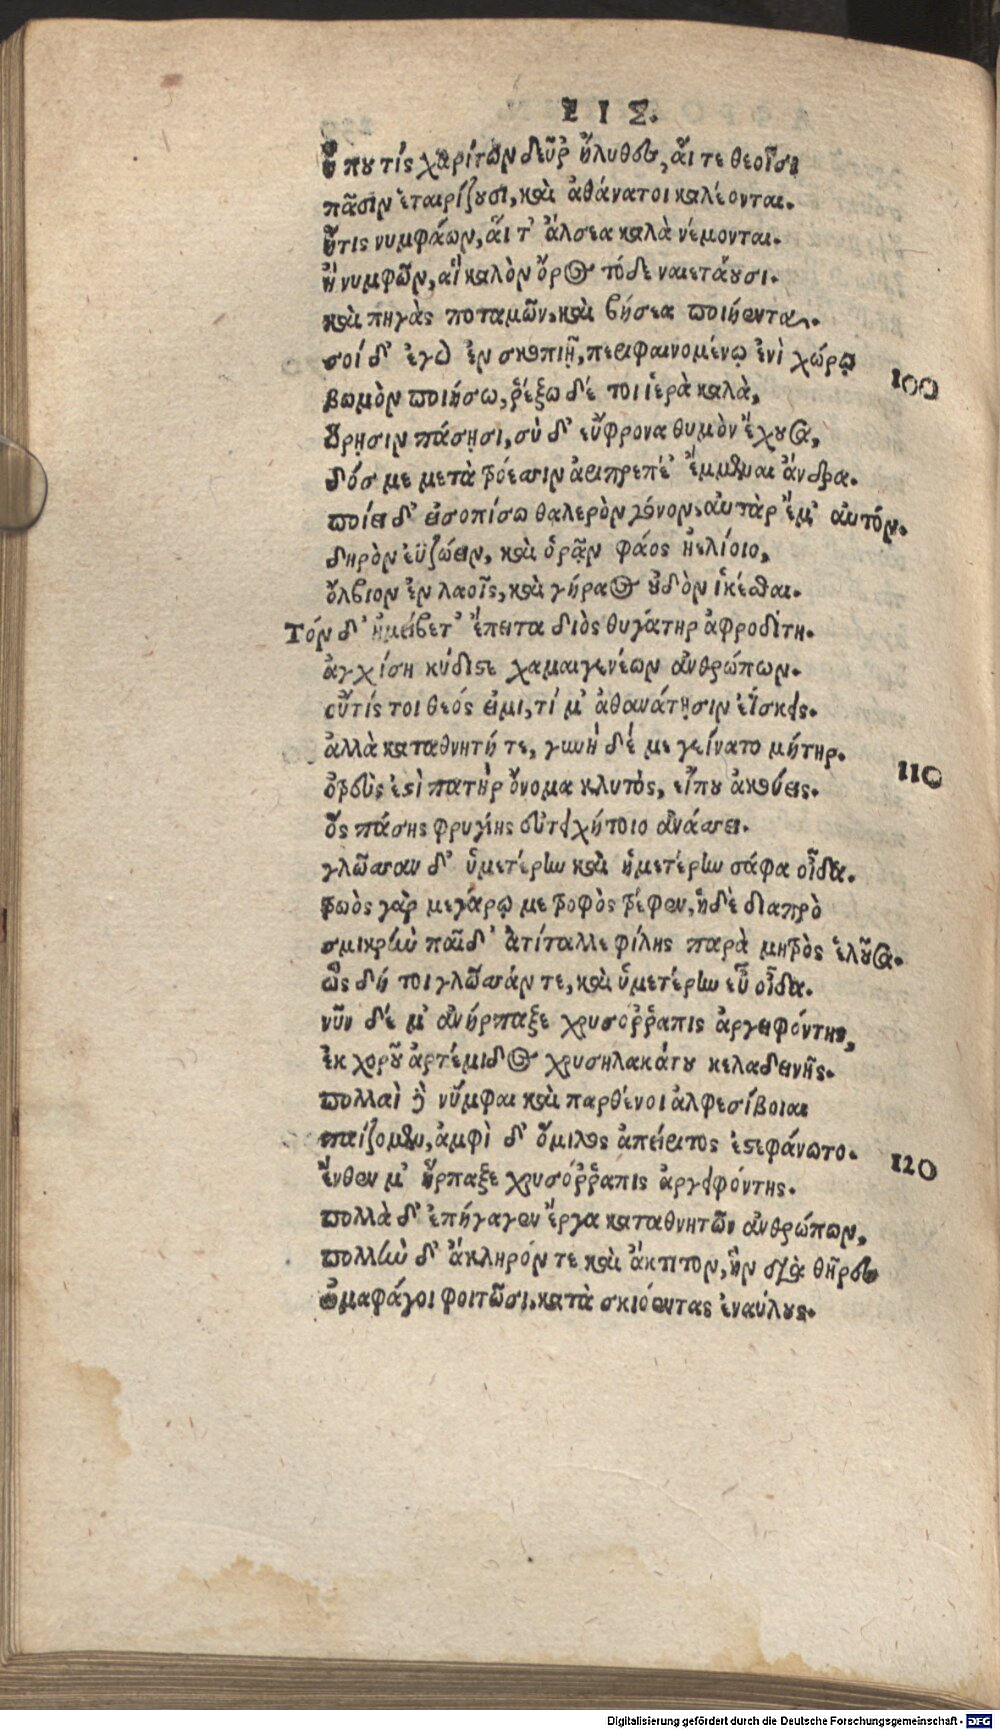 ΕΙΣ.
ἤ που τίς χαρίτων δεῦρ' ἤλυθες, αἵ τε θεοῖσι
πᾶσιν ἑταιρίζουσι, καὶ ἀθάνατοι καλέονται.
ἤτις νυμφάων, αἵ τ' ἄλσεα καλὰ νέμονται.
ἢ νυμφῶν, αἳ καλὸν ὄρος τόδε ναιετάουσι.
καὶ πηγὰς ποταμῶν, καὶ βήσεα ποιήεντα.
σοί δ' ἐγὼ ἐν σκοπιῇ, περιφαινομένῳ ἐνὶ χώρῳ
100
βωμὸν ποιήσω, ῥέξω δέ τοι ἱερὰ καλὰ,
ὥρῃσιν πάσῃσι, σὺ δ' εὔφρονα θυμὸν ἔχουσα,
δός με μετὰ τρώεσσιν ἀριπρεπέ' ἔμμεναι ἄνδρα.
ποίει δ' εἰσοπίσω θαλερὸν γόνον, αὐτὰρ ἔμ' αὐτόν.
δηρὸν ἐϋζώειν, καὶ ὁρᾷν φάος ἠελίοιο,
ὄλβιον ἐν λαοῖς, καὶ γήραος οὐδὸν ἱκέσθαι.
Τόν δ' ἠμείβετ' ἔπειτα διὸς θυγάτηρ ἀφροδίτη.
ἀγχίση κύδιστε χαμαιγενέων ἀνθρώπων.
οὔτίς τοι θεός εἰμι, τί μ' ἀθανάτῃσιν ἐΐσκεις.
ἀλλὰ καταθνητή τε, γυνὴ δέ με γείνατο μήτηρ.
110
ὀτρεὺς ἐστὶ πατὴρ ὄνομα κλυτὸς, εἴπου ἀκούεις.
ὃς πάσης φρυγίης εὐτειχήτοιο ἀνάσσει.
γλῶσσαν δ' ὑμετέρην καὶ ἡμετέρην σάφα οἶδα.
τρωὸς γὰρ μεγάρῳ με τροφὸς τρέφεν, ἡδὲ διαπρὸ
σμικρὴν παῖδ' ἀτίταλλε φίλης παρὰ μητρὸς ἑλοῦσα.
ὣς δή τοι γλῶσσάν τε, καὶ ὑμετέρην εὖ οἶδα.
νῦν δέ μ' ἀνήρπαξε χρυσόῤῥαπις ἀργειφόντης,
ἐκ χοροῦ ἀρτέμιδος χρυσηλακάτου κελαδεινῆς.
πολλαὶ δὲ νύμφαι καὶ παρθένοι ἀλφεσίβοιαι
παίζομεν, ἀμφὶ δ' ὅμιλος ἀπείριτος ἐστεφάνωτο.
120
ἔνθεν μ' ἥρπαξε χρυσόῤῥαπις ἀργειφόντης.
πολλὰ δ' ἐπήγαγεν ἔργα καταθνητῶν ἀνθρώπων,
πολλὴν δ' ἄκληρόν τε καὶ ἄκτιτον, ἣν διὰ θῆρες
ὠμοφάγοι φοιτῶσι, κατὰ σκιόεντας ἐναύλους.
Digitalisierung gefördert durch die Deutsche Forschungsgemeinschaft - DFG